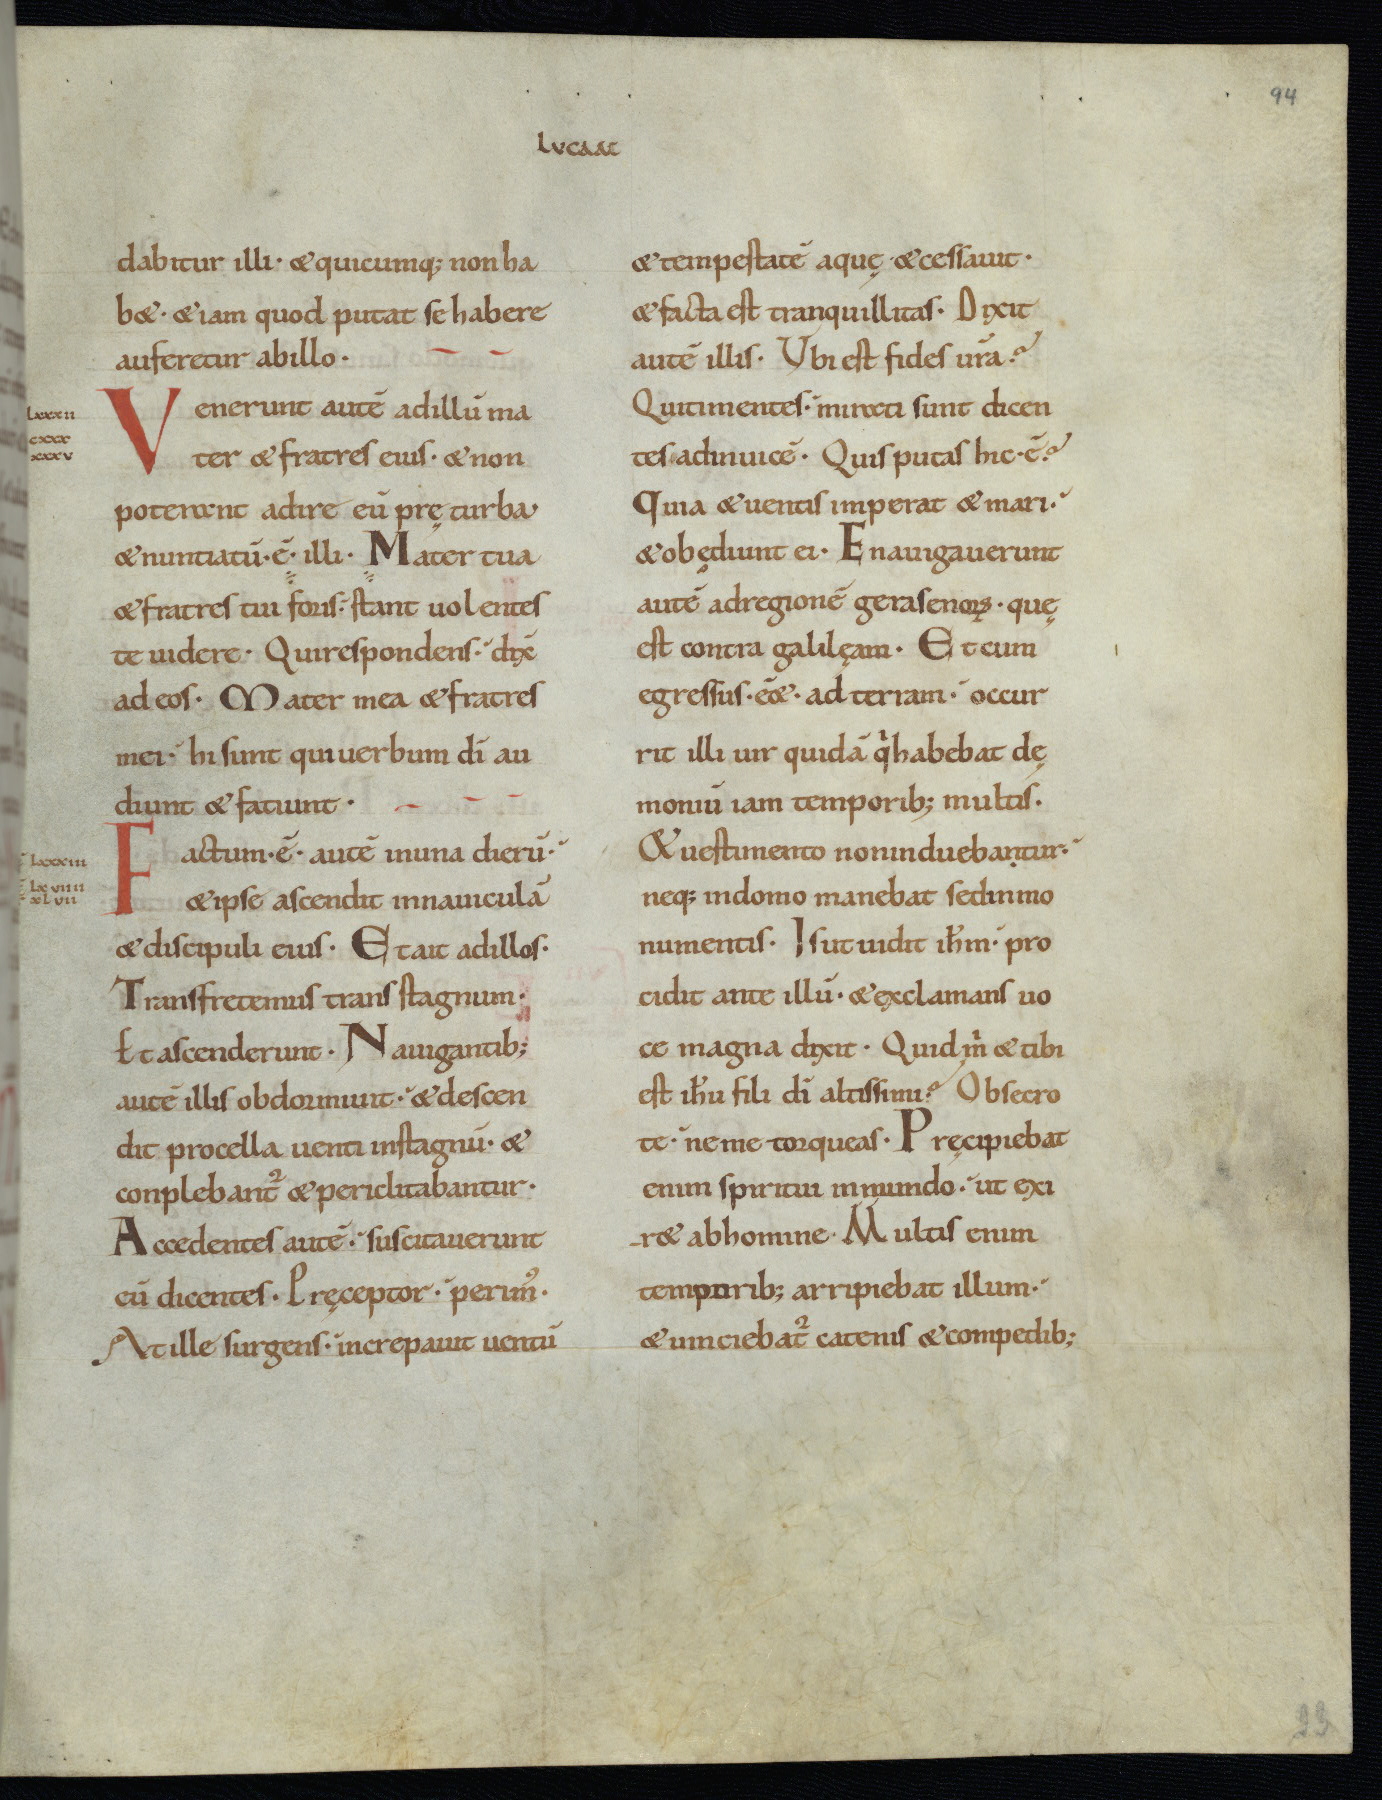 94
Lucaac
dabitur illi· & quicumq; non ha
b&· & iam quod putat se habere
auferetur ab illo·
Lxxxii
cxxx
xxxv
Venerunt autē ad illū ma
ter & fratres eius· & non
poterant adire eū prę turba·
& nuntiatū·ē· illi· Mater tua
& fratres tui foris· stant uolentes
te uidere· Qui respondens· dix̄
ad eos· Mater mea & fratres
mei· hi sunt qui uerbum dī au
diunt & fatiunt·
Lxxxiii
Lxviiii
xLvii
Factum·ē· autē in una dierū·
& ipse ascendit in nauiculā
& discipuli eius· Et ait ad illos·
Transfretemus trans stagnum·
Et ascenderunt· Nauigantib;
autē illis obdormiuit· & descen
dit procella uenti in stagnū· &
conplebant² & periclitabantur·
Accedentes autē· suscitauerunt
eū dicentes· Pręceptor· perim̉·
At ille surgens· increpauit uentū
& tempestatē aquę· & cessauit·
& facta est tranquillitas· Dixit
autē illis· Ubi est fides ur̄a?
Qui timentes· mirati sunt dicen
tes ad inuicē· Quis putas hic·ē?
Quia & uentis imperat & mari·
& obędiunt ei· Enauigauerunt
autē ad regionē gerasenoꝝ· quę
est contra galilęam· Et cum
egressus·eē&· ad terram· occur
rit illi uir quidā qͥ habebat dę
moniū iam temporib; multis·
& uestimento non induebaṇtur·
neq; in domo manebat sed in mo
numentis· Is ut uidit ih̄m· pro
cidit ante illū· & exclamans uo
ce magna dixit· Quid m̊ & tibi
est ih̄u fili dī altissimi? Obsecro
te· ne me torqueas· Pręcipiebat
enim spiritui inmundo· ut exi
r& ab homine· Multis enim
temporib; arripiebat illum·
& uinciebat² catenis & compedib;